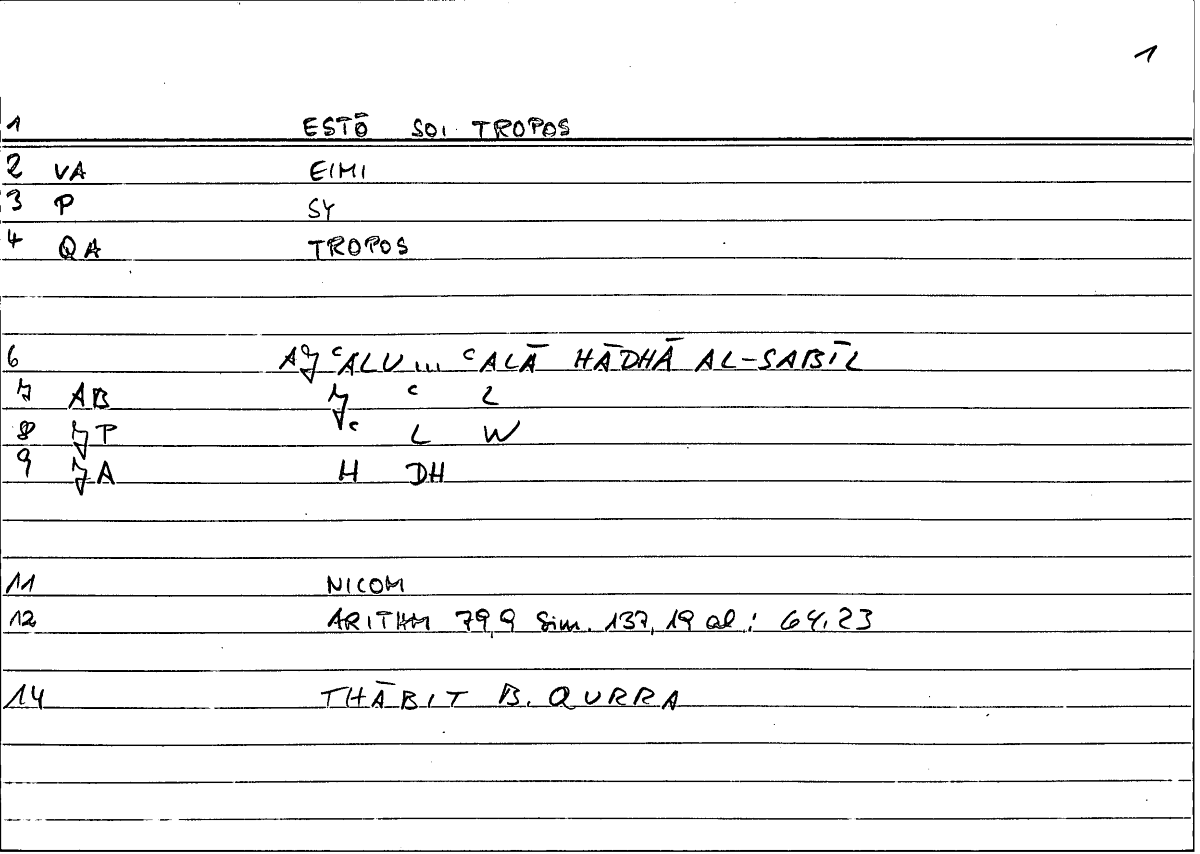 1
1 ESTŌ SOI TROPOS
2 VA EIMI
3 P SY
4 QA TROPOS
6 AJ ᶜALU ... ᶜALĀ HĀDHĀ AL-SABĪL
7 AB J ᶜ L
8 JP ᶜ L W
9 JA H DH
11 NICOM
12 ARITHM 79,9 Sim. 137,19 al: 64.23
14 THĀBIT B. QURRA